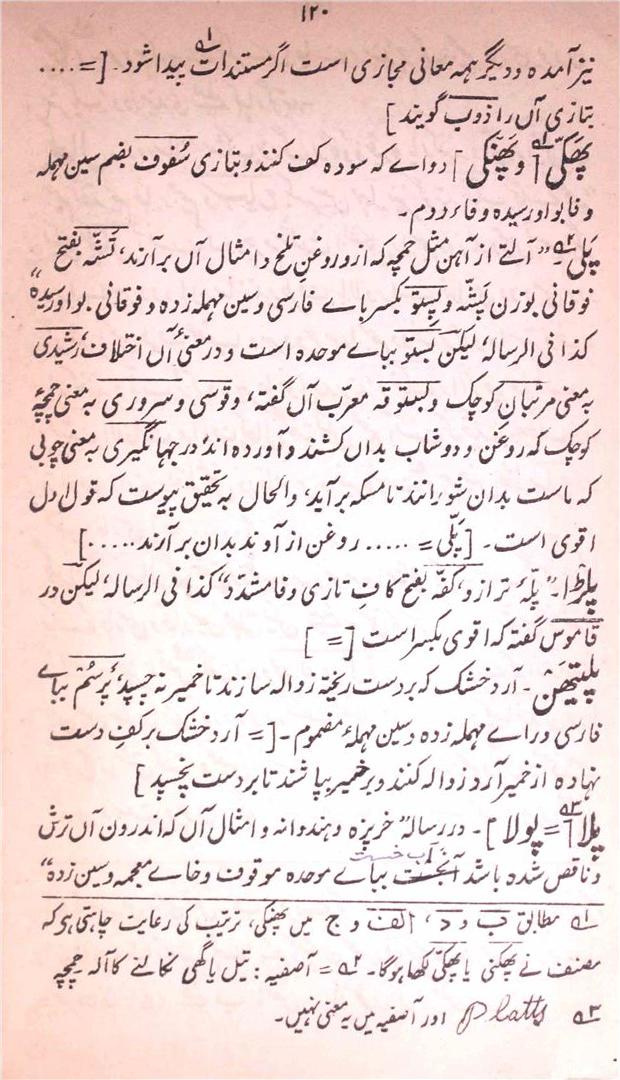 ۱۲۰
نیز آمده و دیگر ہمہ معانی مجازی است اگر مستندات پیدا شود۔ [=....
بتازی آں را ذوب گویند]
پھکیّ [ و پھنکی ] دواے کہ سوده کف کنند و بتازی سُفوف بضم سین مہملہ
و فا بواو رسیده و فاء دوم۔
پَلی۔ "آلتے از آہن مثل چمچہ کہ ازو روغنِ تلخ و امثال آں بر آرند، تُشہ بفتح
فوقانی بوزن پَشّہ و پِستو بکسر باے فارسی وسین مہملہ زده و فوقانی بواو رسیده"
کذا فی الرسالہ، لیکن بستو بباے موحده است و در معنیٔ آں اختلاف، رشیدی
بہ معنی مرتبان کوچک و بستوقہ معرّب آں گفتہ، و قوسی و سروری بہ معنی چمچۂ
کوچک کہ روغن و دوشاب بداں کشند و آورده اند، در جہانگیری بہ معنی چوبی
کہ ماست بدان شورانند تا مسکہ بر آید، والحال بہ تحقیق پیوست کہ قول اول
اقوی است۔ [پَلّی = ..... روغن از آوند بدان بر آرند .....]
پلڑا۔ "پلّۂ ترازو، کفّہ بفتح کافِ تازی و فا مشدّد" کذا فی الرسالہ، لیکن در
قاموس گفتہ کہ اقوی بکسر است [= ]
پلیتھن۔ آرد خشک کہ بر دست ریختہ زوالہ سازند تا خمیر نہ چسپد، پُرسُم بباے
فارسی و راے مہملہ زده و سین مہملۂ مضموم۔ [= آرد خشک بر کفِ دست
نہاده از خمیر آرد زوالہ کنند و بر خمیر بپاشند تا بر دست نچسپد]
پلا [= پولا]۔ در رسالہ "خربزه و ہندوانہ و امثال آں کہ اندرون آں ترش
و ناقص شده باشد آبخست بباے موحده موقوف و خاے معجمہ و سین زده"
آب خست
۱؎ مطابق ب و د، الف و ج میں پھنکی، ترتیب کی رعایت چاہتی ہے کہ
مصنف نے پھکنی یا پھکیّ لکھا ہوگا۔ ۲؎ = آصفیہ: تیل یا گھی نکالنے کا آلہ چمچہ
۳؎ Platts اور آصفیہ میں یہ معنی نہیں۔